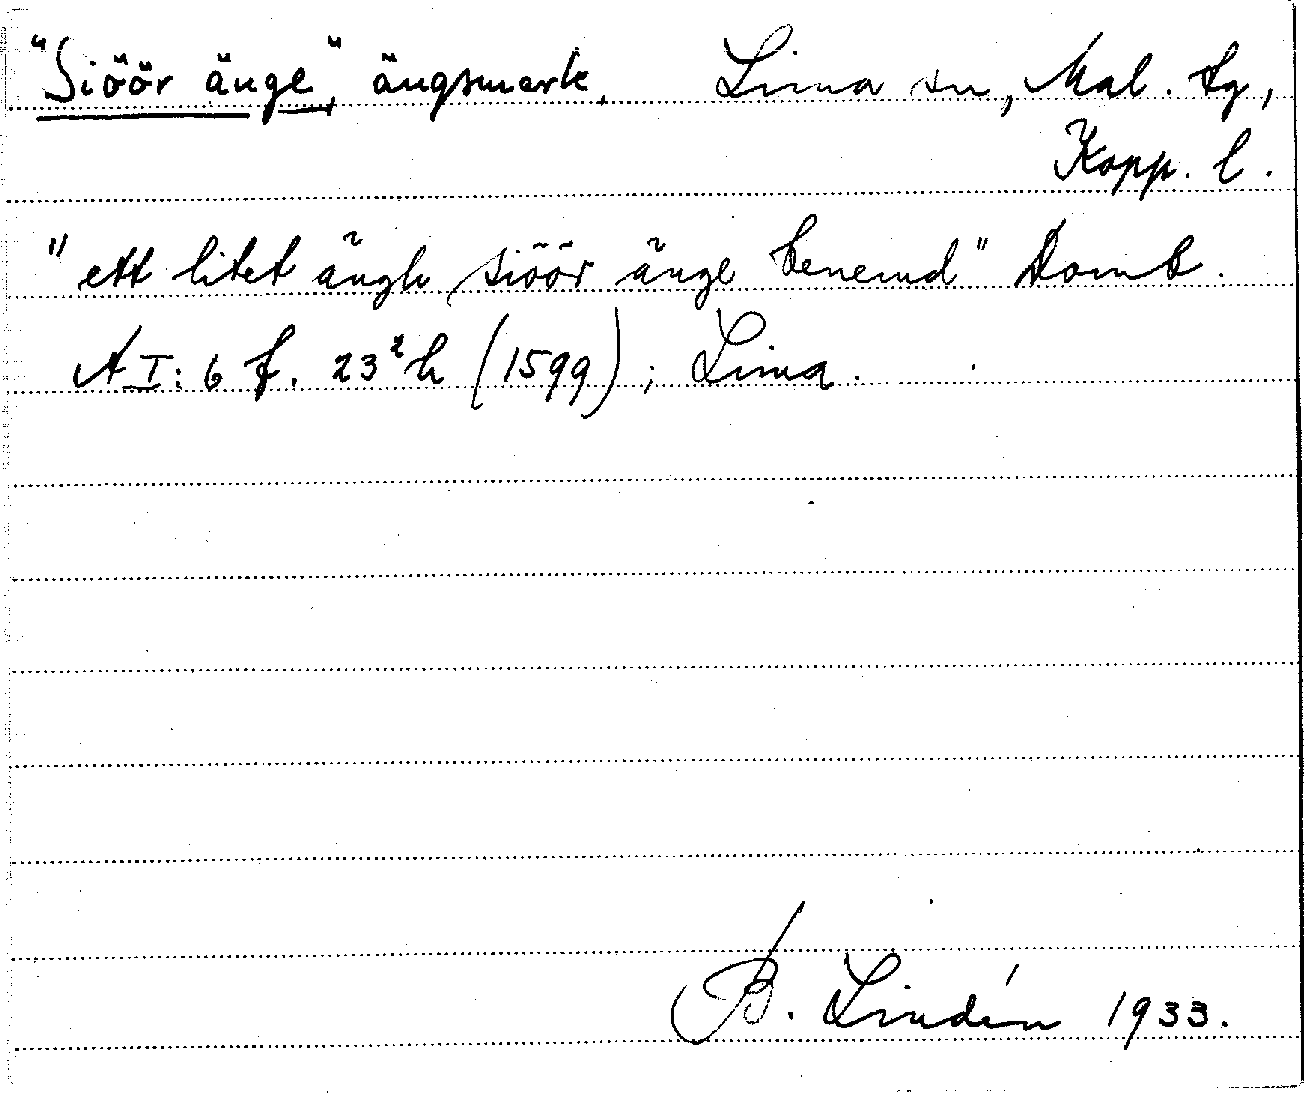 "Siöör änge", ängsmark. Lima sn, Mal. tg,
Kopp. l.
"ett litet ängh siöör änge benemd" Domb.
A I: 6 f. 23² h (1599); Lima.
B. Lindén 1933.